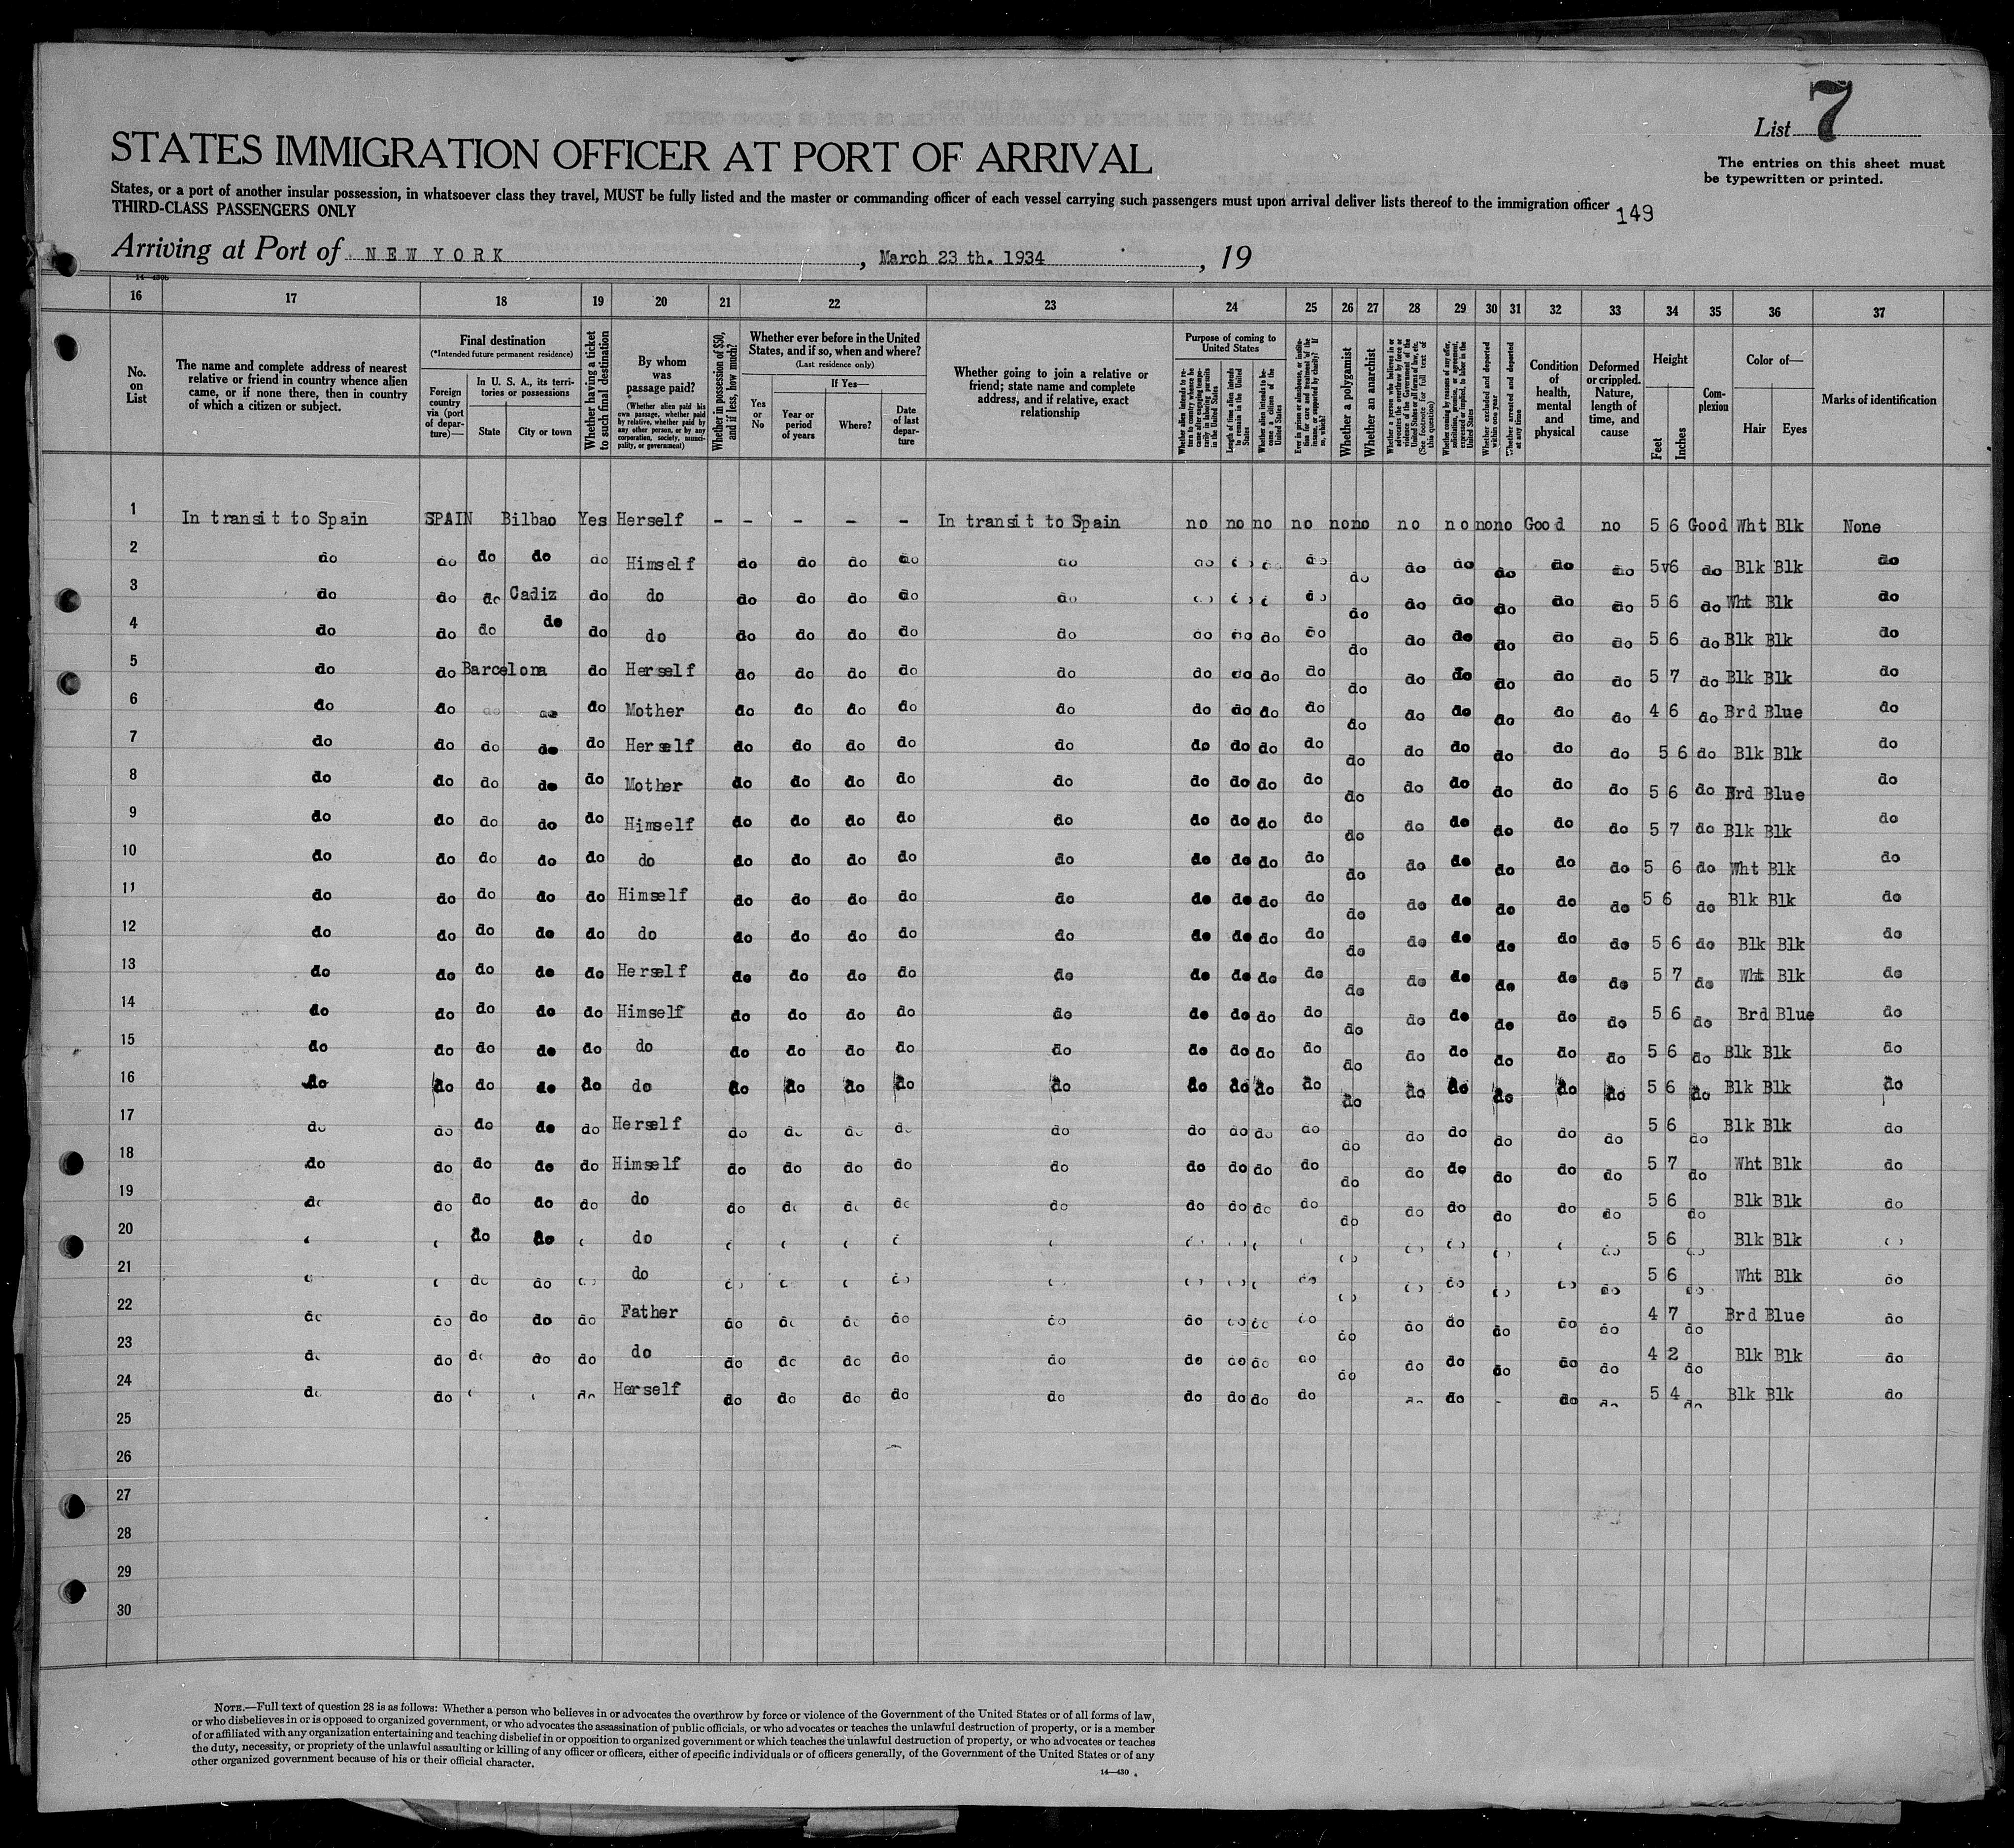 List 7
STATES IMMIGRATION OFFICER AT PORT OF ARRIVAL
The entries on this sheet must
be typewritten or printed.
States, or a port of another insular possession, in whatsoever class they travel, MUST be fully listed and the master or commanding officer of each vessel carrying such passengers must upon arrival deliver lists thereof to the immigration officer
THIRD-CLASS PASSENGERS ONLY
149
Arriving at Port of NEW YORK, March 23 th. 1934, 19
14—430b
16 17 18 19 20 21 22 23 24 25 26 27 28 29 30 31 32 33 34 35 36 37
No. on List
The name and complete address of nearest relative or friend in country whence alien came, or if none there, then in country of which a citizen or subject.
Final destination
(*Intended future permanent residence)
Foreign country via (port of departure)—
In U. S. A., its territories or possessions
State
City or town
Whether having a ticket to such final destination
By whom was passage paid?
(Whether alien paid his own passage, whether paid by relative, whether paid by any other person, or by any corporation, society, municipality, or government)
Whether in possession of $50, and if less, how much?
Whether ever before in the United States, and if so, when and where?
(Last residence only)
Yes or No
If Yes—
Year or period of years
Where?
Date of last departure
Whether going to join a relative or friend; state name and complete address, and if relative, exact relationship
Purpose of coming to United States
Whether alien intends to return to country whence he came after engaging temporarily in laboring pursuits in the United States
Length of time alien intends to remain in the United States
Whether alien intends to become a citizen of the United States
Ever in prison or almshouse, or institution for care and treatment of the insane, or supported by charity? If so, which?
Whether a polygamist
Whether an anarchist
Whether a person who believes in or advocates the overthrow by force or violence of the Government of the United States or all forms of law, etc. (See footnote for full text of this question)
Whether coming by reason of any offer, solicitation, promise, or agreement, expressed or implied, to labor in the United States
Whether excluded and deported within one year
Whether arrested and deported at any time
Condition of health, mental and physical
Deformed or crippled. Nature, length of time, and cause
Height
Feet
Inches
Complexion
Color of—
Hair
Eyes
Marks of identification
1 In transit to Spain SPAIN Bilbao Yes Herself - - - - - In transit to Spain no no no no no no no no no no Good no 5 6 Good Wht Blk None
2 do do do do do Himself do do do do do do do do do do do do do 5 6 do Blk Blk do
3 do do do Cadiz do do do do do do do do do do do do do do 5 6 do Wht Blk do
4 do do do do do do do do do do do do do do do do do do do do do do 5 6 do Blk Blk do
5 do do Barcelona do Herself do do do do do do do do do do do do do do do 5 7 do Blk Blk do
6 do do do do do Mother do do do do do do do do do do do do do do do 4 6 do Brd Blue do
7 do do do do do Herself do do do do do do do do do do do do do do do 5 6 do Blk Blk do
8 do do do do do Mother do do do do do do do do do do do do do do do 5 6 do Brd Blue do
9 do do do do do Himself do do do do do do do do do do do do do do do 5 7 do Blk Blk do
10 do do do do do do do do do do do do do do do do do do do do do 5 6 do Wht Blk do
11 do do do do do Himself do do do do do do do do do do do do do do do 5 6 do Blk Blk do
12 do do do do do do do do do do do do do do do do do do do do do 5 6 do Blk Blk do
13 do do do do do Herself do do do do do do do do do do do do do do do 5 7 do Wht Blk do
14 do do do do do Himself do do do do do do do do do do do do do do do 5 6 do Brd Blue do
15 do do do do do do do do do do do do do do do do do do do do do 5 6 do Blk Blk do
16 do do do do do do do do do do do do do do do do do do do do do 5 6 do Blk Blk do
17 do do do do do Herself do do do do do do do do do do do do do do do 5 6 do Blk Blk do
18 do do do do do Himself do do do do do do do do do do do do do do do 5 7 do Wht Blk do
19 do do do do do do do do do do do do do do do do do do do do do 5 6 do Blk Blk do
20 do do do 5 6 Blk Blk
21 do do do do do do 5 6 Wht Blk do
22 do do do do do Father do do do do do do do do do do do do do do 4 7 do Brd Blue do
23 do do do do do do do do do do do do do do do do do do do do do 4 2 do Blk Blk do
24 do do Herself do do do do do do do do do do do 5 4 Blk Blk do
25
26
27
28
29
30
NOTE.—Full text of question 28 is as follows: Whether a person who believes in or advocates the overthrow by force or violence of the Government of the United States or of all forms of law,
or who disbelieves in or is opposed to organized government, or who advocates the assassination of public officials, or who advocates or teaches the unlawful destruction of property, or is a member
of or affiliated with any organization entertaining and teaching disbelief in or opposition to organized government or which teaches the unlawful destruction of property, or who advocates or teaches
the duty, necessity, or propriety of the unlawful assaulting or killing of any officer or officers, either of specific individuals or of officers generally, of the Government of the United States or of any
other organized government because of his or their official character.
14—430